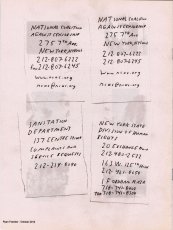 NATIONAL COALITION
AGAINST CENSORSHIP
275 7th AVE.
NEW YORK, NY 10001
212-807-6222
FAX 212-807-6245
www.ncac.org
ncac@ncac.org
NATIONAL COALITION
AGAINST CENSORSHIP
275 7th AVE
NEW YORK, NY 10001
212-807-6222
212-807-6245
www.ncac.org
ncac@ncac.org
SANITATION
DEPARTMENT
137 CENTRE STREET
COMPLAINTS AND
SERVICE REQUESTS
212-219-8090
NEW YORK STATE
DIVISION OF HUMAN
RIGHTS
20 EXCHANGE PLACE
212-480-2522
163 W. 125th ST
212-961-8650
1 FORDHAM PLAZA
718-741-8400